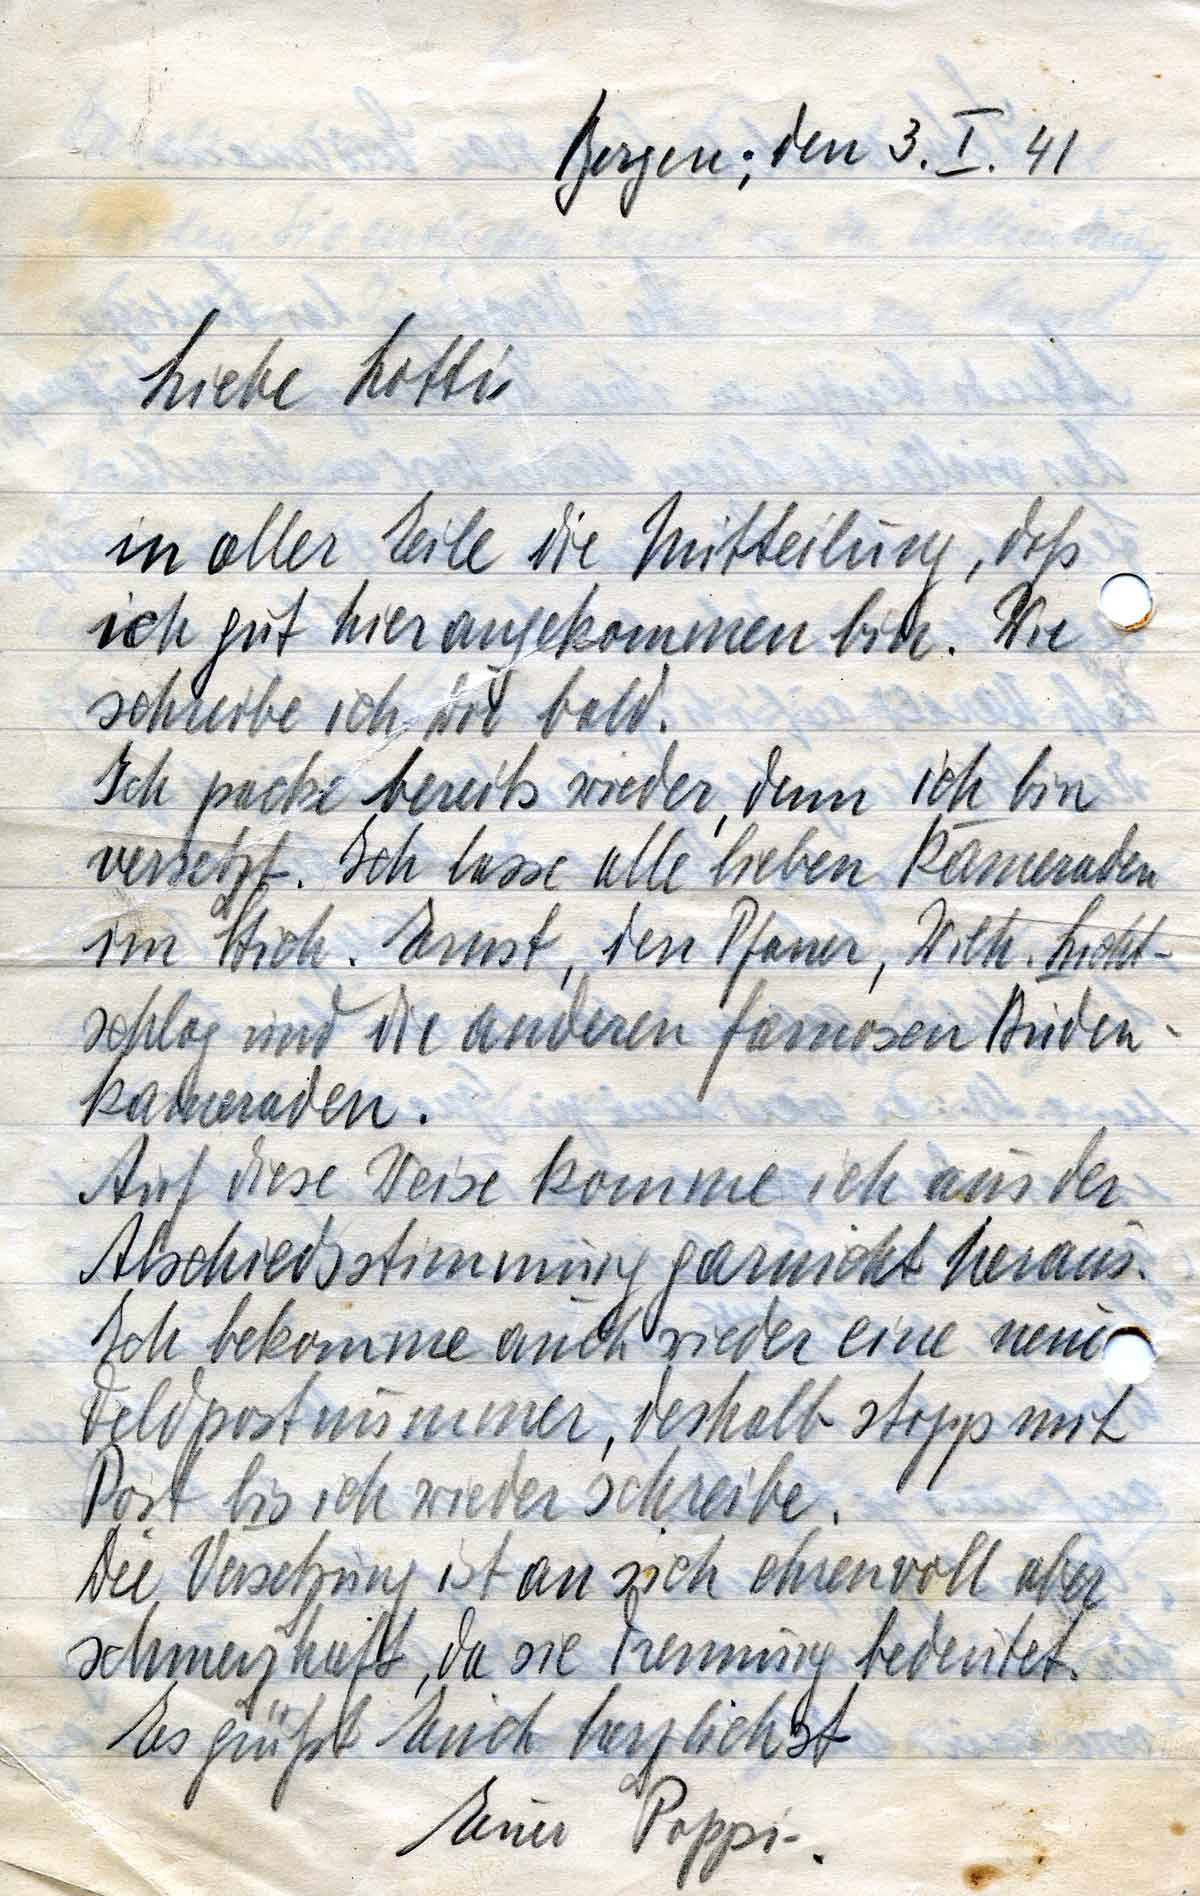 Bergen, den 3. I. 41
Liebe Lotti
in aller Eile die Mitteilung, daß
ich gut hier angekommen bin. Wie
schreibe ich Dir bald.
Ich packe bereits wieder, denn ich bin
versetzt. Ich lasse alle lieben Kameraden
im Stich. Ernst, den Pfarrer, Wilh. Licht-
schlag und die anderen famosen Buden-
kameraden.
Auf diese Weise komme ich aus der
Abschiedsstimmung garnicht heraus.
Ich bekomme auch wieder eine neue
Feldpostnummer, deshalb stopp mit
Post bis ich wieder schreibe.
Die Versetzung ist an sich ehrenvoll aber
schmerzhaft, da sie Trennung bedeutet.
Es grüßt Euch herzlichst
Euer Poppi.